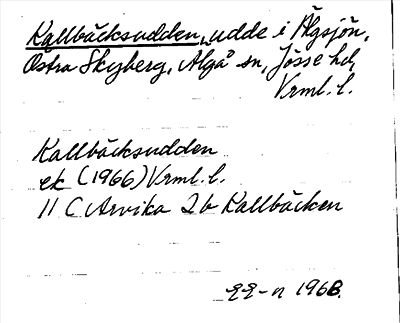 Kallbäcksudden, udde i Älgsjön,
Östra Skyberg, Älgå sn, Jösse hd,
Vrml. l.
Kallbäcksudden
ek (1966) Vrml. l.
11 C Arvika 2 b Kallbäcken
1968.